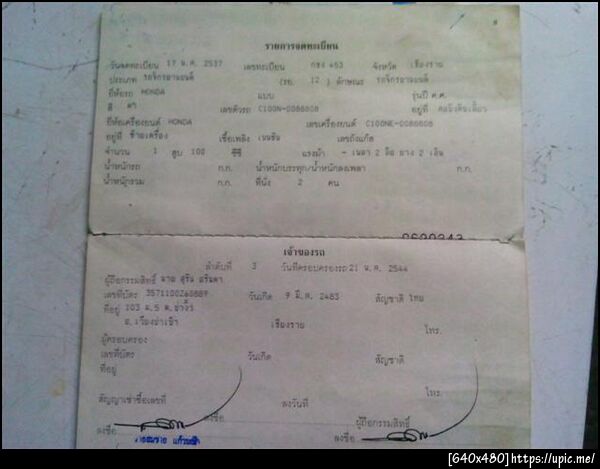 รายการจดทะเบียน
วันจดทะเบียน 17 พ.ค. 2537 เลขทะเบียน กธจ 453 จังหวัด เชียงราย
ประเภท รถจักรยานยนต์ (รย. 12 ) ลักษณะ รถจักรยานยนต์
ยี่ห้อรถ HONDA แบบ รุ่นปี ค.ศ.
สี ดำ เลขตัวรถ C100N-0086808 อยู่ที่
ยี่ห้อเครื่องยนต์ HONDA เลขเครื่องยนต์ C100NE-0086808
อยู่ที่ ซ้ายเครื่อง เชื้อเพลิง เบนซิน เลขถังแก๊ส
จำนวน 1 สูบ 100 ซีซี แรงม้า - เพลา 2 ล้อ ยาง 2 เส้น
น้ำหนักรถ ก.ก. น้ำหนักบรรทุก/น้ำหนักลงเพลา ก.ก.
น้ำหนักรวม ก.ก. ที่นั่ง 2 คน
เจ้าของรถ
ลำดับที่ 3 วันที่ครอบครองรถ 21 พ.ค. 2544
ผู้ถือกรรมสิทธิ์ นาย
เลขที่บัตร 3571100260889 วันเกิด 9 มี.ค. 2483 สัญชาติ ไทย
ที่อยู่ 103 ม.5
อ.เวียงป่าเป้า เชียงราย โทร.
ผู้ครอบครอง
เลขที่บัตร วันเกิด สัญชาติ
ที่อยู่
โทร.
สัญญาเช่าซื้อเลขที่ ลงวันที่
ลงชื่อ ผู้ถือกรรมสิทธิ์
ลงชื่อ ลงชื่อ
[640x480]https://upic.me/